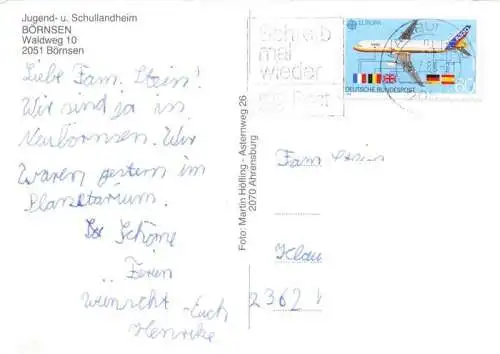 Jugend- u. Schullandheim
BÖRNSEN
Waldweg 10
2051 Börnsen
Liebe Fam. Stein!
Wir sind ja in
Neubörnsen. Wir
waren gestern im
Planetarium.
Schöne
Ferien
wünscht Euch
Henrike
Foto: Martin Höfling - Asternweg 26
2070 Ahrensburg
Schreib
mal
wieder
EUROPA
60
DEUTSCHE BUNDESPOST
Fam. Stein
Klau
2362